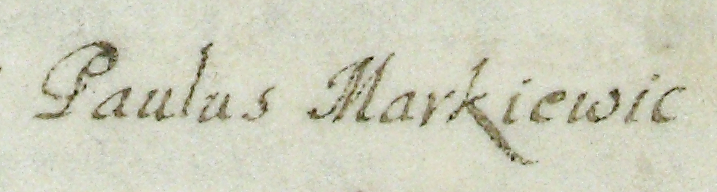 Paulus Markiewic